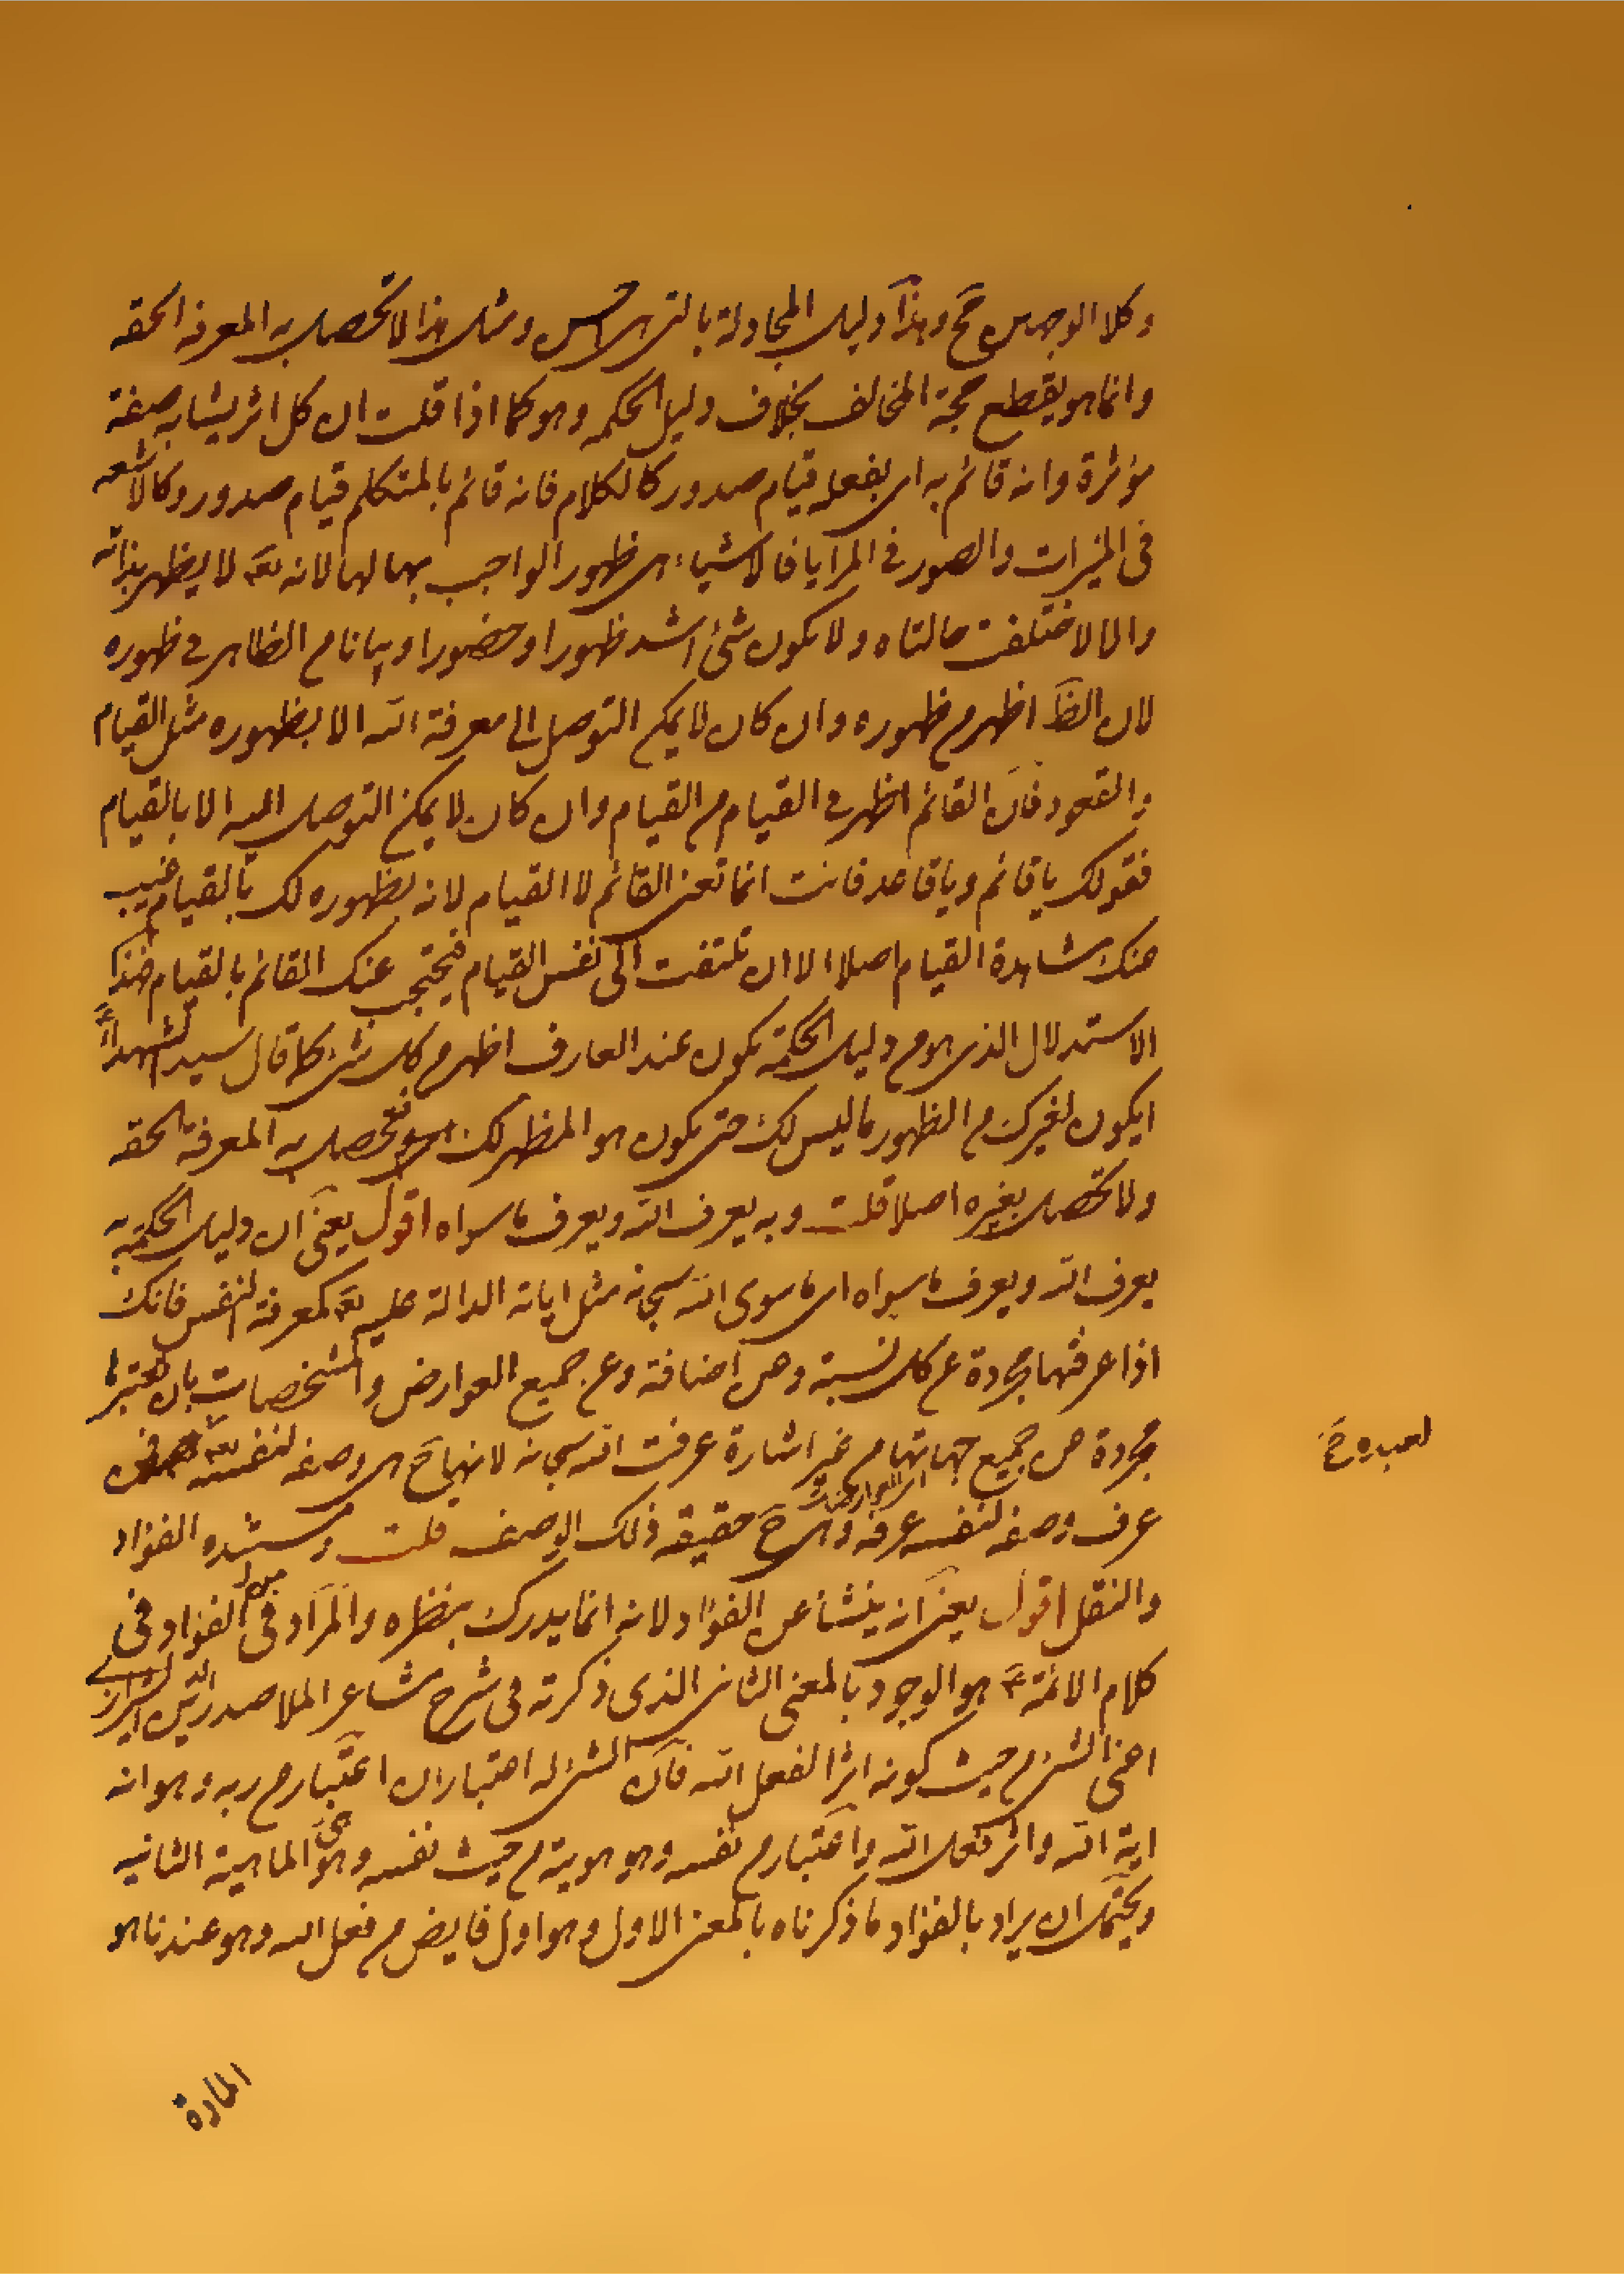 وكلا الوجهين مح وهذا دليل المجادلة بالتي هي احسن ومثل هذا لا تحصل به المعرفة الحقه
وانما هو يقطع حجة المخالف بخلاف دليل الحكمه وهو كما اذا قلت ان كل اثر يشابه صفة
مؤثرة وانه قائم به اى بفعله قيام صدور كالكلام فانه قائم بالمتكلم قيام صدور وكالاشعه
فى المنيرات والصور فى المرايا فالاشياء هى ظهور الواجب بها لها لانه تع لا يظهر بذاته
والا لاختلفت حالتاه ولا يكون شئ اشد ظهورا وحضورا وبيانا من الظاهر فى ظهوره
لان الظ اظهر من ظهوره وان كان لا يمكن التوصل الى معرفة الله الا بظهوره مثل القيام
والقعود فان القائم اظهر فى القيام من القيام وان كان لا يمكن التوصل اليه الا بالقيام
فقولك يا قائم ويا قاعد فانت انما تعنى القائم لا القيام لانه بظهوره لك بالقيام غيب
عنك مشاهدة القيام اصلا الا ان تلتفت الى نفس القيام فيحتجب عنك القائم بالقيام فهذا
الاستدلال الذى هو من دليل الحكمة يكون عند العارف اظهر من كل شئ كما قال سيد الشهداء ع
ايكون لغيرك من الظهور ما ليس لك حتى يكون هو المظهر لك تحصل به المعرفة الحقه
ولا تحصل بغيره اصلا قلت وبه يعرف الله ويعرف ما سواه اقول يعنى ان دليل الحكمة به
يعرف الله ويعرف ما سواه اى ما سوى الله سبحانه مثل اياته الدالة عليه تع كمعرفة النفس فانك
اذا عرفتها مجردة عن كل نسبة وعن اضافة وعن جميع العوارض والمشخصات بان تعتبرها
مجردة عن جميع جهاتها من غير اشارة عرفت الله سبحانه لانها ح هى وصفه لنفسه تع فمن
لعبده خ
عرف وصفه لنفسه عرفه وهى ح حقيقه ذلك الوصف قلت ومستنده الفؤاد
والنقل اقول يعنى انه ينشأ عن الفؤاد لانه انما يدرك بنظره والمراد فى الفؤاد فى
كلام الائمة ع هو الوجود بالمعنى الثانى الذى ذكرته فى شرح مشاعر الملا صدر الدين الشيرازى
اعنى الشئ من حيث كونه اثرا لفعل الله فان الشئ له اعتباران اعتبار من ربه وهو انه
اية الله واثر فعل الله واعتبار من نفسه وهو هويته من حيث نفسه وهى الماهية الثانيه
ويحتمل ان يراد بالفؤاد ما ذكرناه بالمعنى الاول وهو اول فايض من فعل الله وهو عندنا هو
المادة